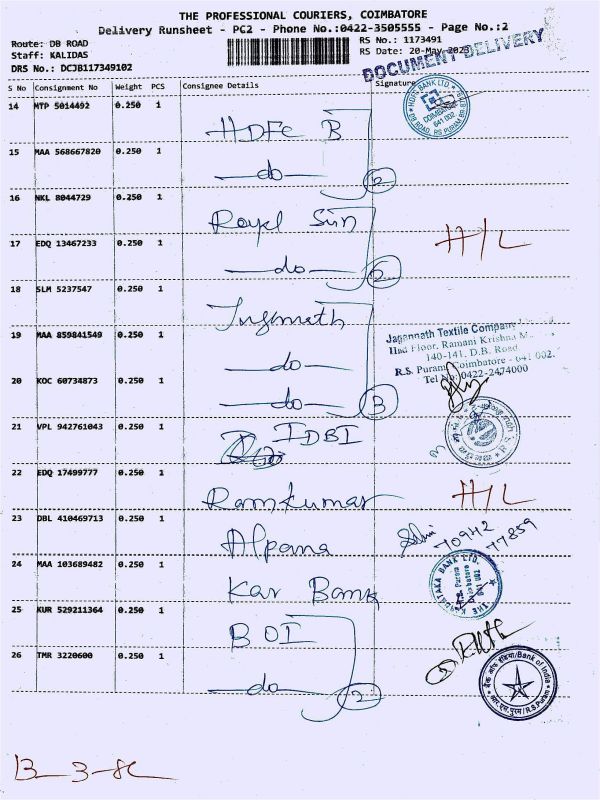 THE PROFESSIONAL COURIERS, COIMBATORE
Delivery Runsheet - PC2 - Phone No.:0422-3505555 - Page No.:2
Route: DB ROAD
RS No.: 1173491
Staff: KALIDAS
RS Date: 20-May-2023
DRS No.: DCJB117349102
DOCUMENT DELIVERY
S No Consignment No Weight PCS Consignee Details Signature
14 MTP 5014492 0.250 1
HDFC B
15 MAA 568667820 0.250 1
do
16 NKL 8044729 0.250 1
Royal Sun
17 EDQ 13467233 0.250 1
H/L
do
18 SLM 5237547 0.250 1
19 MAA 859841549 0.250 1
Jagannath Textile Company
IInd Floor, Ramani Krishna
140-141, D.B. Road
R.S. Puram, Coimbatore - 641 002.
Tel No: 0422-2474000
do
20 KOC 60734873 0.250 1
do 3
21 VPL 942761043 0.250 1
IDBI
22 EDQ 17499777 0.250 1
Ramkumar H/L
23 DBL 410469713 0.250 1
Alpana
70942
77859
24 MAA 103689482 0.250 1
Kar Bank
25 KUR 529211364 0.250 1
BOI
26 TMR 3220600 0.250 1
do 2
Bank of India
R.S.Puram